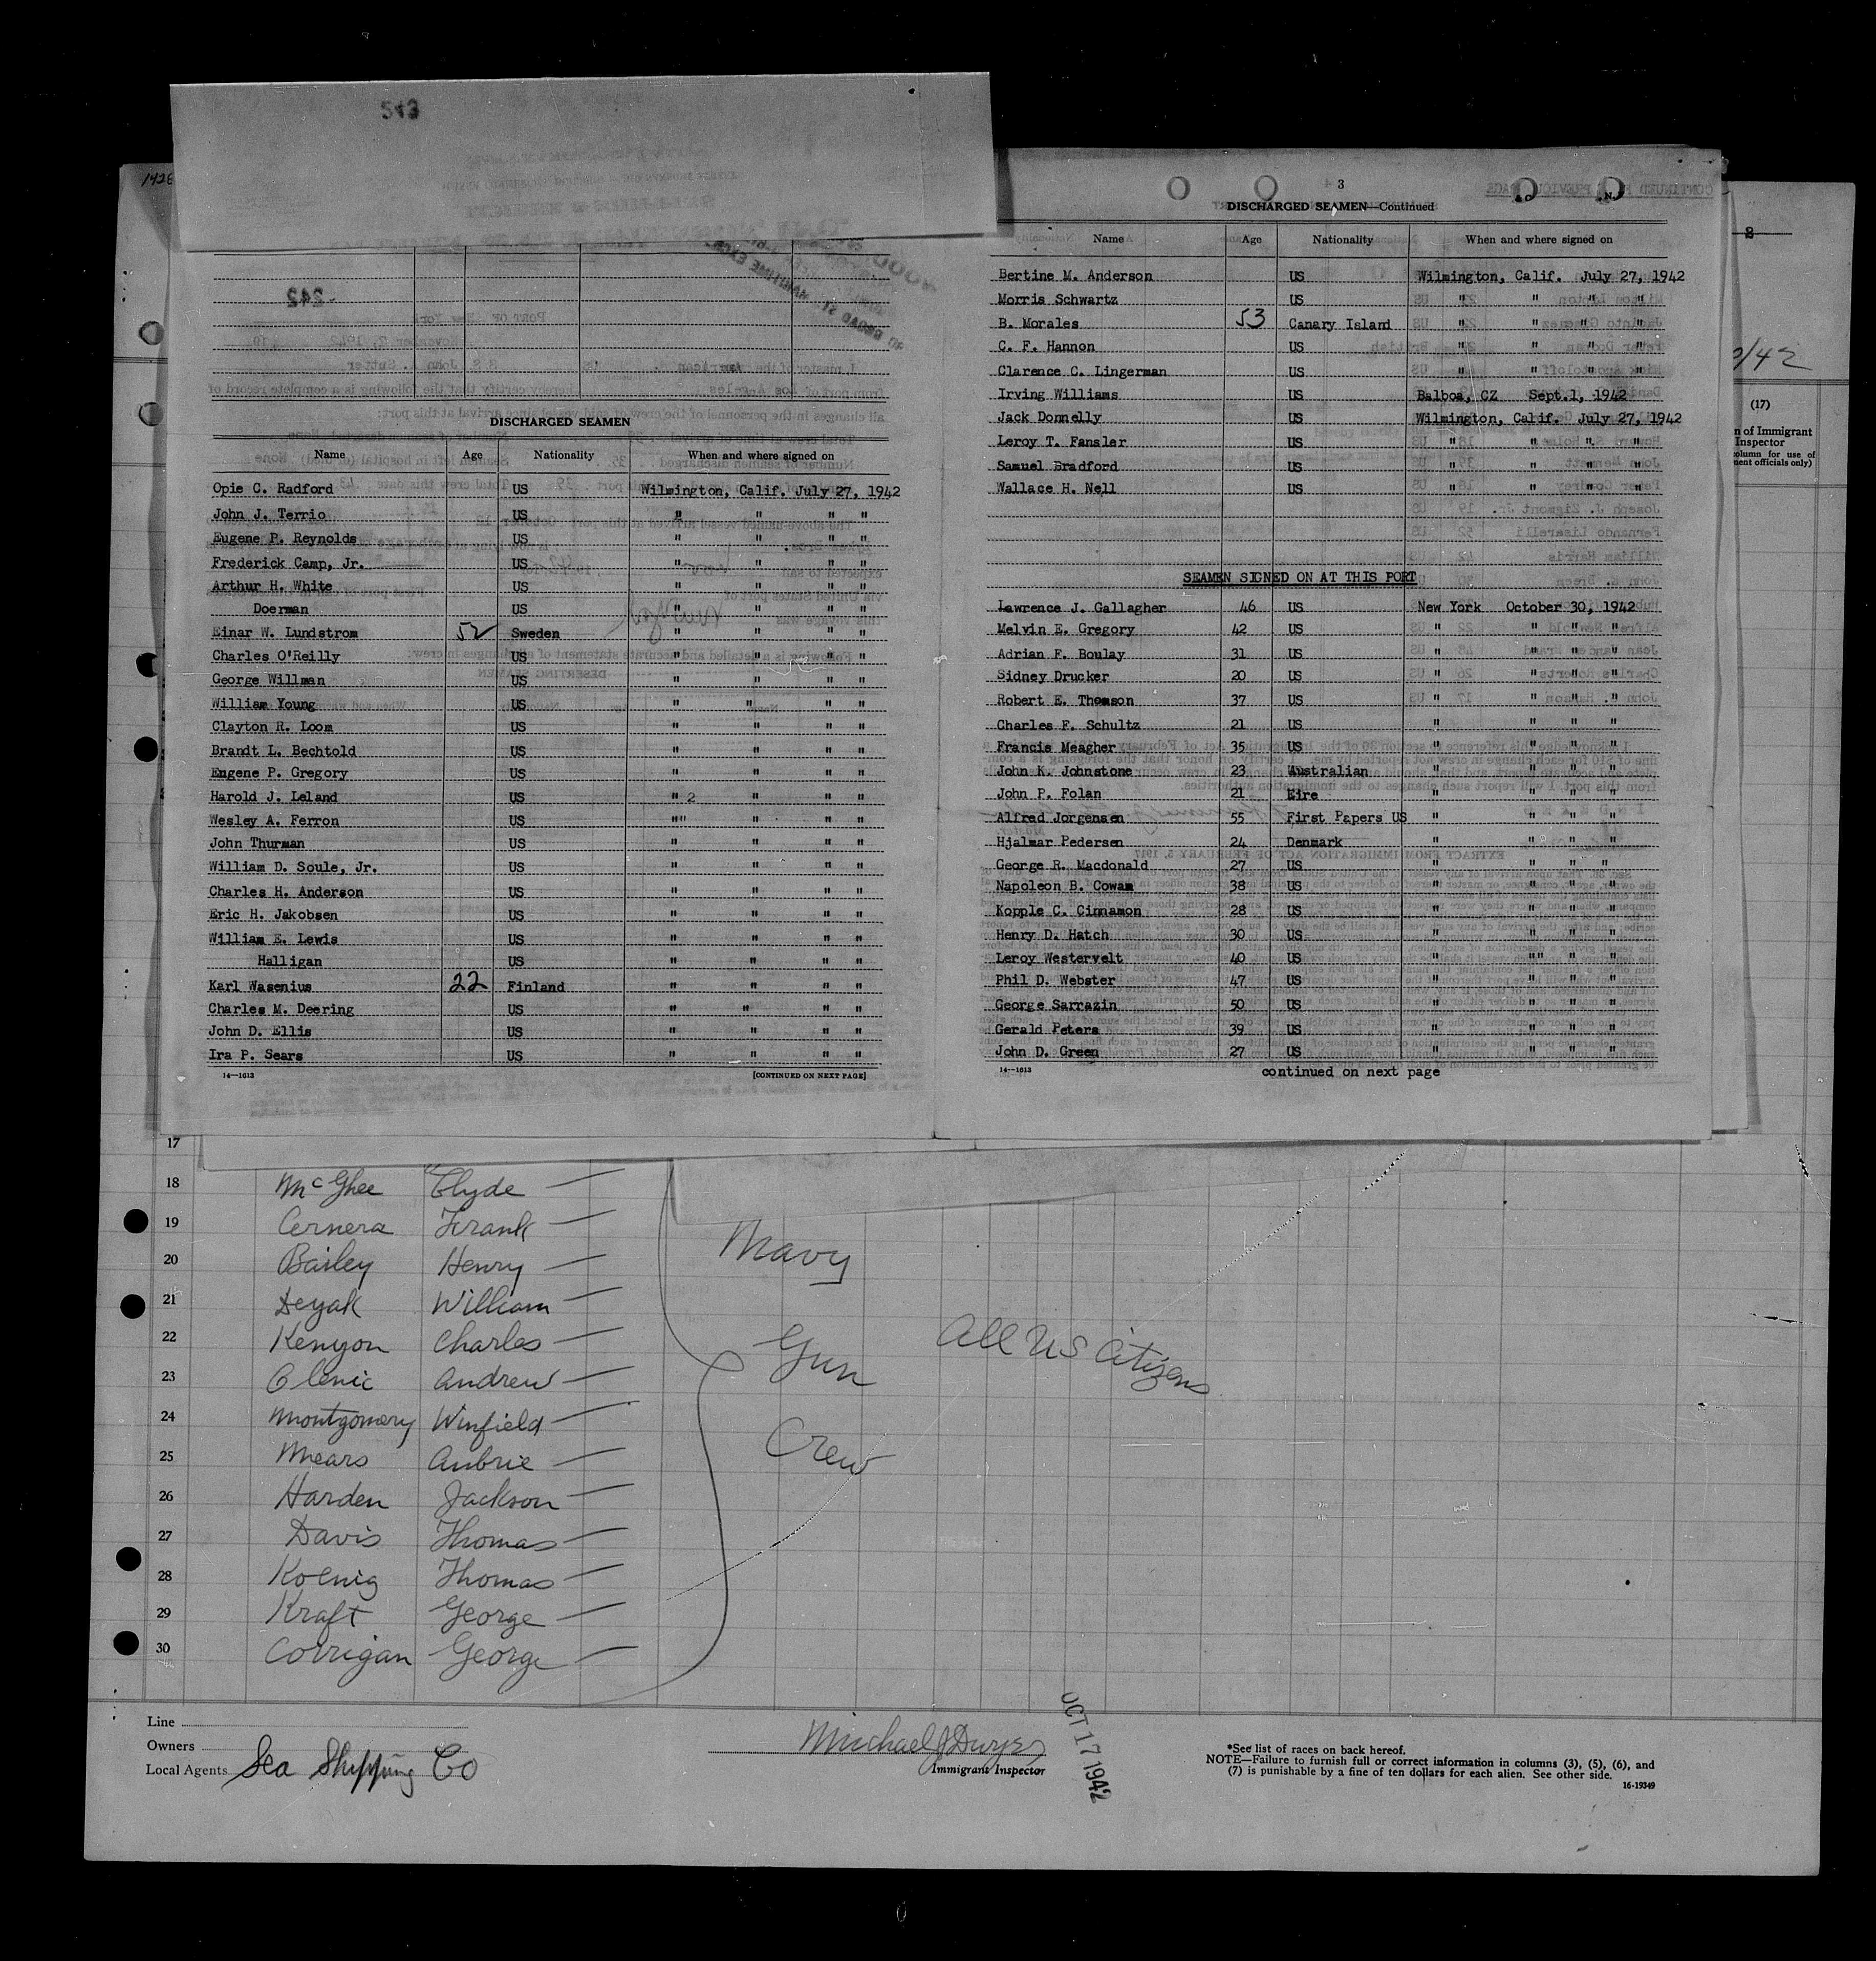 543
1428
DISCHARGED SEAMEN
Name Age Nationality When and where signed on
Opie C. Radford US Wilmington, Calif. July 27, 1942
John J. Terrio US " " " "
Eugene P. Reynolds US " " " "
Frederick Camp, Jr. US " " " "
Arthur H. White US " " " "
Doerman US " " " "
Einar W. Lundstrom 52 Sweden " " " "
Charles O'Reilly US " " " "
George Willman US " " " "
William Young US " " " "
Clayton R. Loom US " " " "
Brandt L. Bechtold US " " " "
Eugene P. Gregory US " " " "
Harold J. Leland US " 2 " " "
Wesley A. Ferron US "" " " "
John Thurman US " " " "
William D. Soule, Jr. US " " " "
Charles H. Anderson US " " " "
Eric H. Jakobsen US " " " "
William E. Lewis US " " " "
Halligan US " " " "
Karl Wasenius 22 Finland " " " "
Charles M. Deering US " " " "
John D. Ellis US " " " "
Ira P. Sears US " " " "
14—1613 [CONTINUED ON NEXT PAGE]
3
DISCHARGED SEAMEN—Continued
Name Age Nationality When and where signed on
Bertine M. Anderson US Wilmington, Calif. July 27, 1942
Morris Schwartz US " " " "
B. Morales 53 Canary Island " " " "
C. F. Hannon US " " " "
Clarence C. Lingerman US " " " "
Irving Williams US Balboa, CZ Sept.1, 1942
Jack Donnelly US Wilmington, Calif. July 27, 1942
Leroy T. Fansler US " " " "
Samuel Bradford US " " " "
Wallace H. Nell US " " " "
SEAMEN SIGNED ON AT THIS PORT
Lawrence J. Gallagher 46 US New York October 30, 1942
Melvin E. Gregory 42 US " " " "
Adrian F. Boulay 31 US " " " "
Sidney Drucker 20 US " " " "
Robert E. Thomson 37 US " " " "
Charles F. Schultz 21 US " " " "
Francis Meagher 35 US " " " "
John K. Johnstone 23 Australian " " " "
John P. Folan 21 Eire " " " "
Alfred Jorgensen 55 First Papers US " " " "
Hjalmar Pedersen 24 Denmark " " " "
George R. Macdonald 27 US " " " "
Napoleon B. Cowan 38 US " " " "
Kopple C. Cinnamon 28 US " " " "
Henry D. Hatch 30 US " " " "
Leroy Westervelt 40 US " "" " "
Phil D. Webster 47 US " " " "
George Sarrazin 50 US " " " "
Gerald Peters 39 US " " " "
John D. Green 27 US " " " "
14—1613 continued on next page
2
/42
(17)
n of Immigrant
Inspector
olumn for use of
ment officials only)
17
18 McGhee Clyde —
19 Cernera Frank —
20 Bailey Henry —
21 Deyak William —
22 Kenyon Charles —
23 Olenic Andrew —
24 Montgomery Winfield —
25 Mears Aubrie —
26 Harden Jackson —
27 Davis Thomas —
28 Koenig Thomas —
29 Kraft George —
30 Corrigan George —
Navy
Gun
Crew
All US Citizens
Line
Owners
Local Agents Sea Shipping Co
Michael J Dwyer
Immigrant Inspector
OCT 17 1942
*See list of races on back hereof.
NOTE—Failure to furnish full or correct information in columns (3), (5), (6), and
(7) is punishable by a fine of ten dollars for each alien. See other side.
16-19349